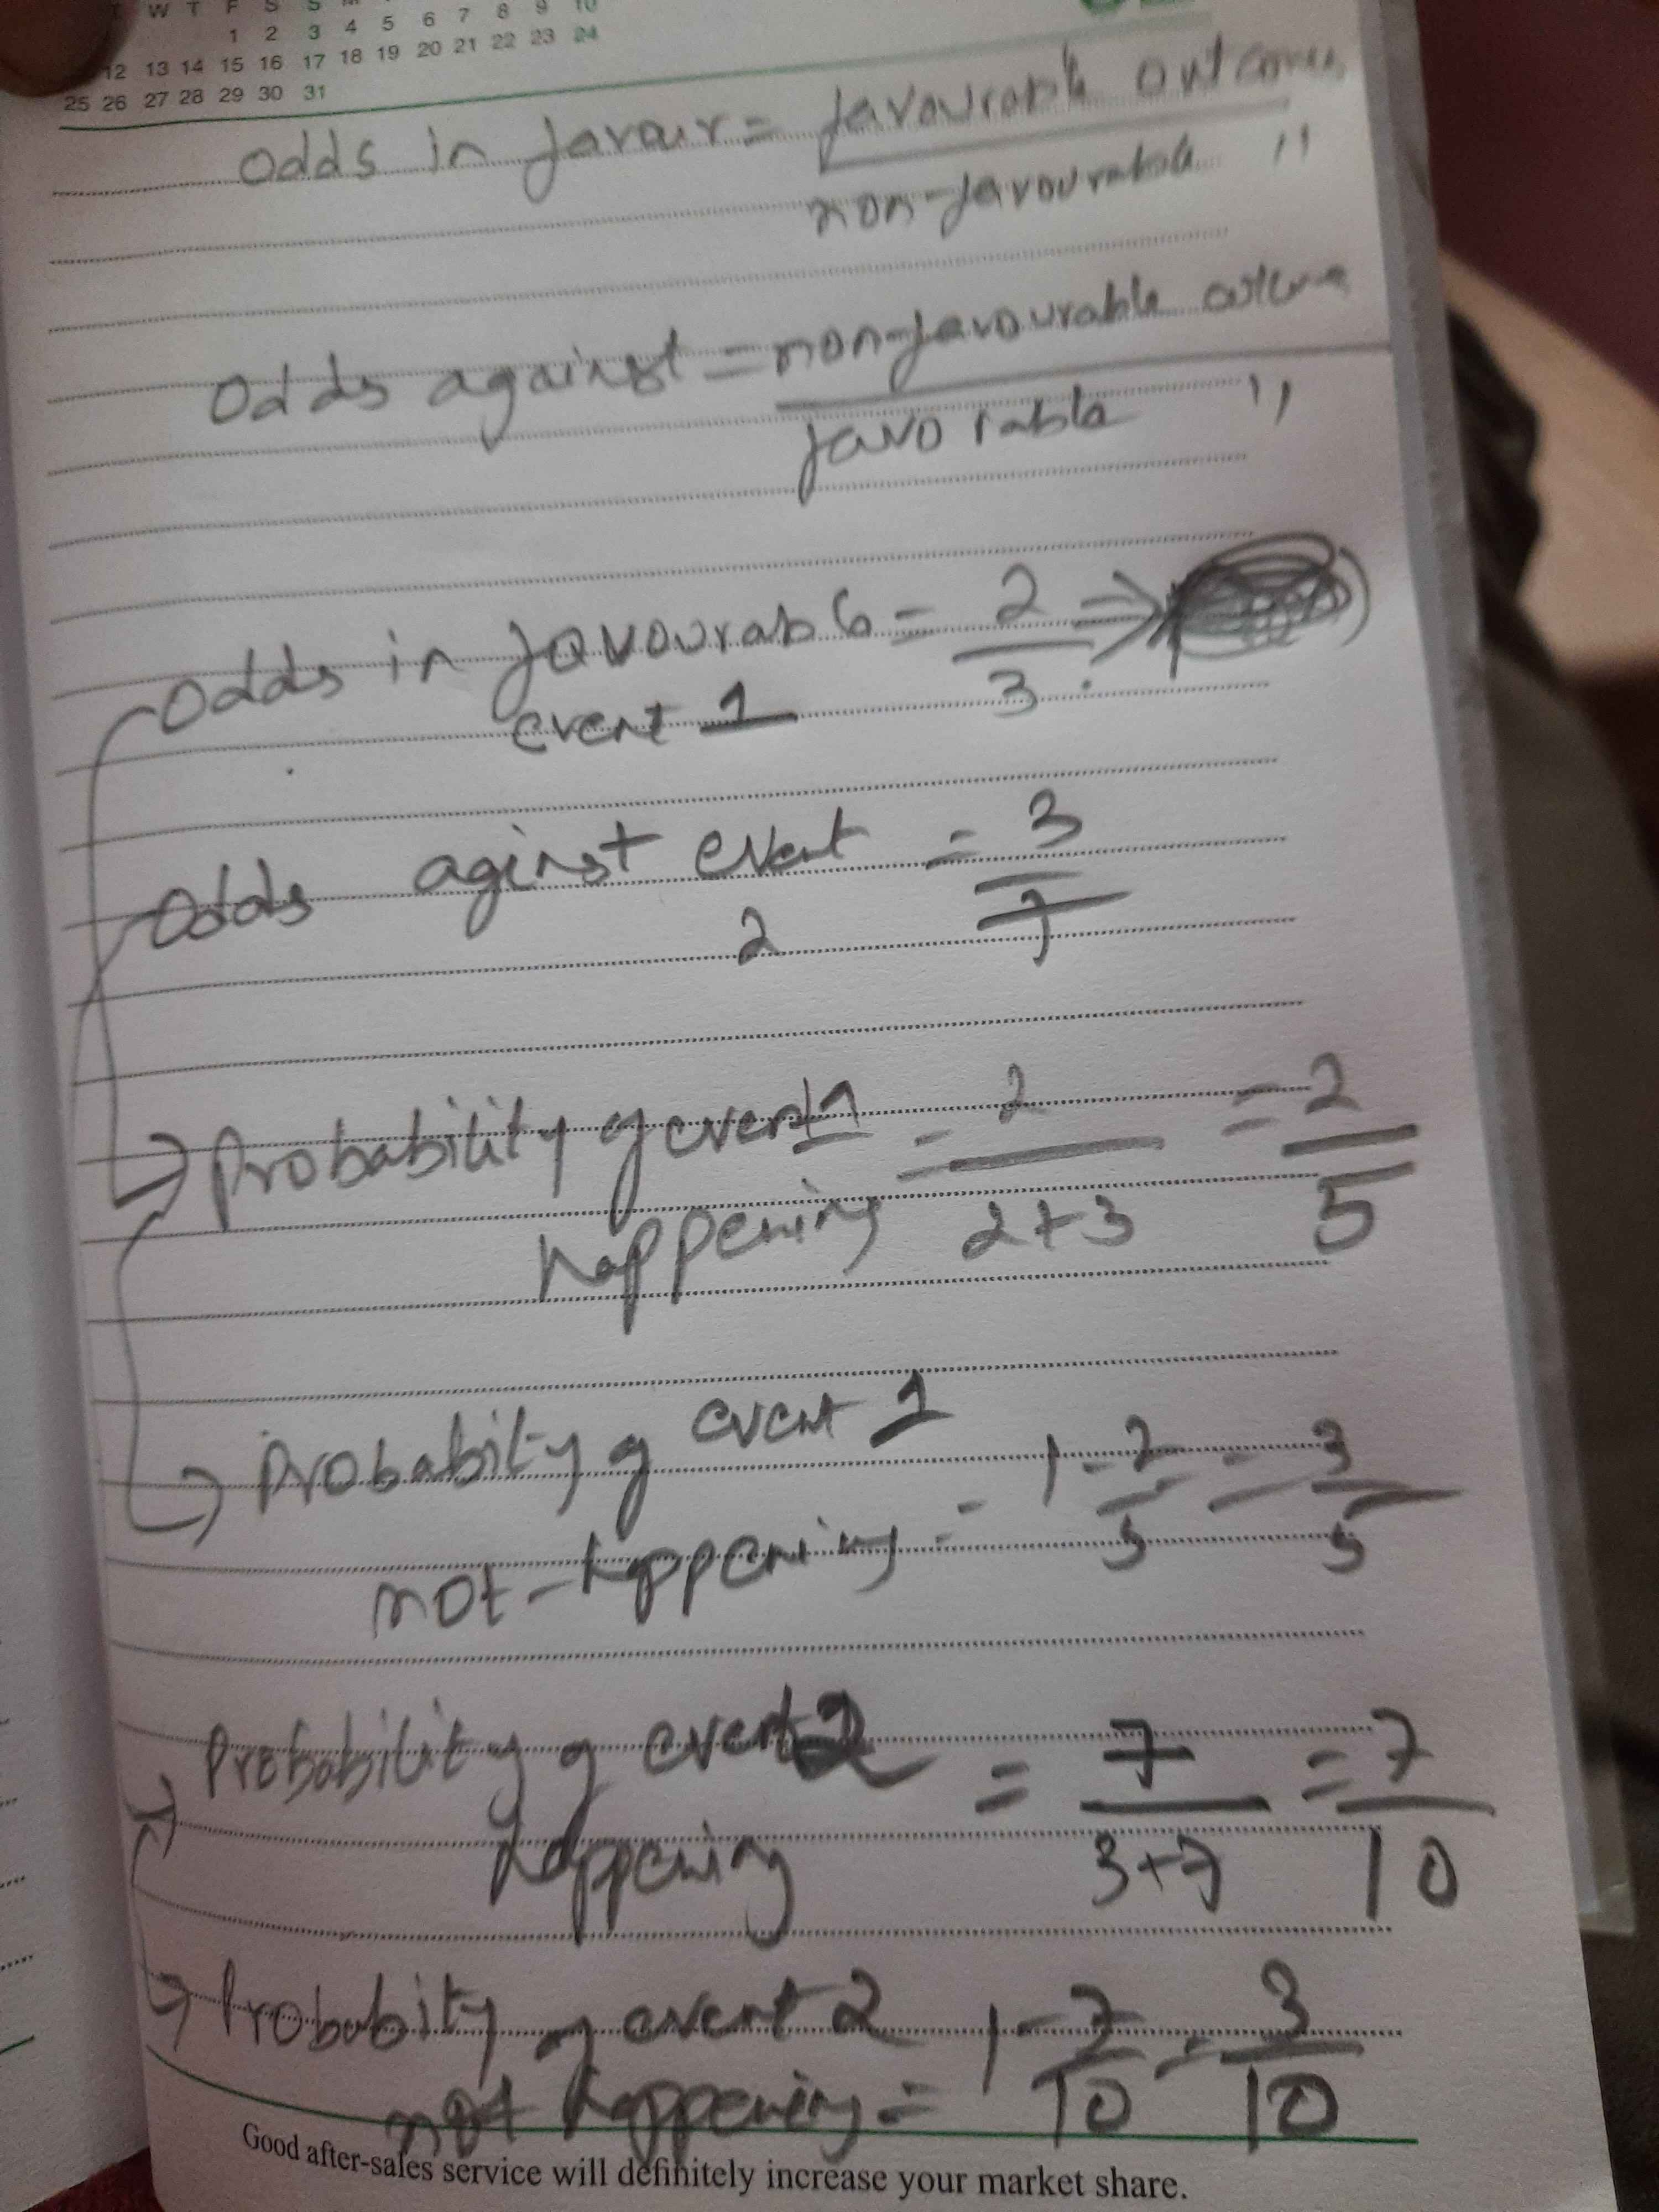 W T F S S M
1 2 3 4 5 6 7 8 9 10
12 13 14 15 16 17 18 19 20 21 22 23 24
25 26 27 28 29 30 31
Odds in favour = favourable outcomes
non-favourable "
Odds against = non-favourable outcome
favorable "
Odds in favourable = 2 ⇒
event 1 3
Odds aginst event = 3
2 7
→ Probability of event 1 = 2 = 2
happening 2+3 5
→ Probability of event 1
not-happening = 1 - 2/5 = 3/5
→ Probability of event 2 = 7 = 7
happening 3+7 10
→ Probabity of event 2
not happening = 1 - 7/10 = 3/10
Good after-sales service will definitely increase your market share.